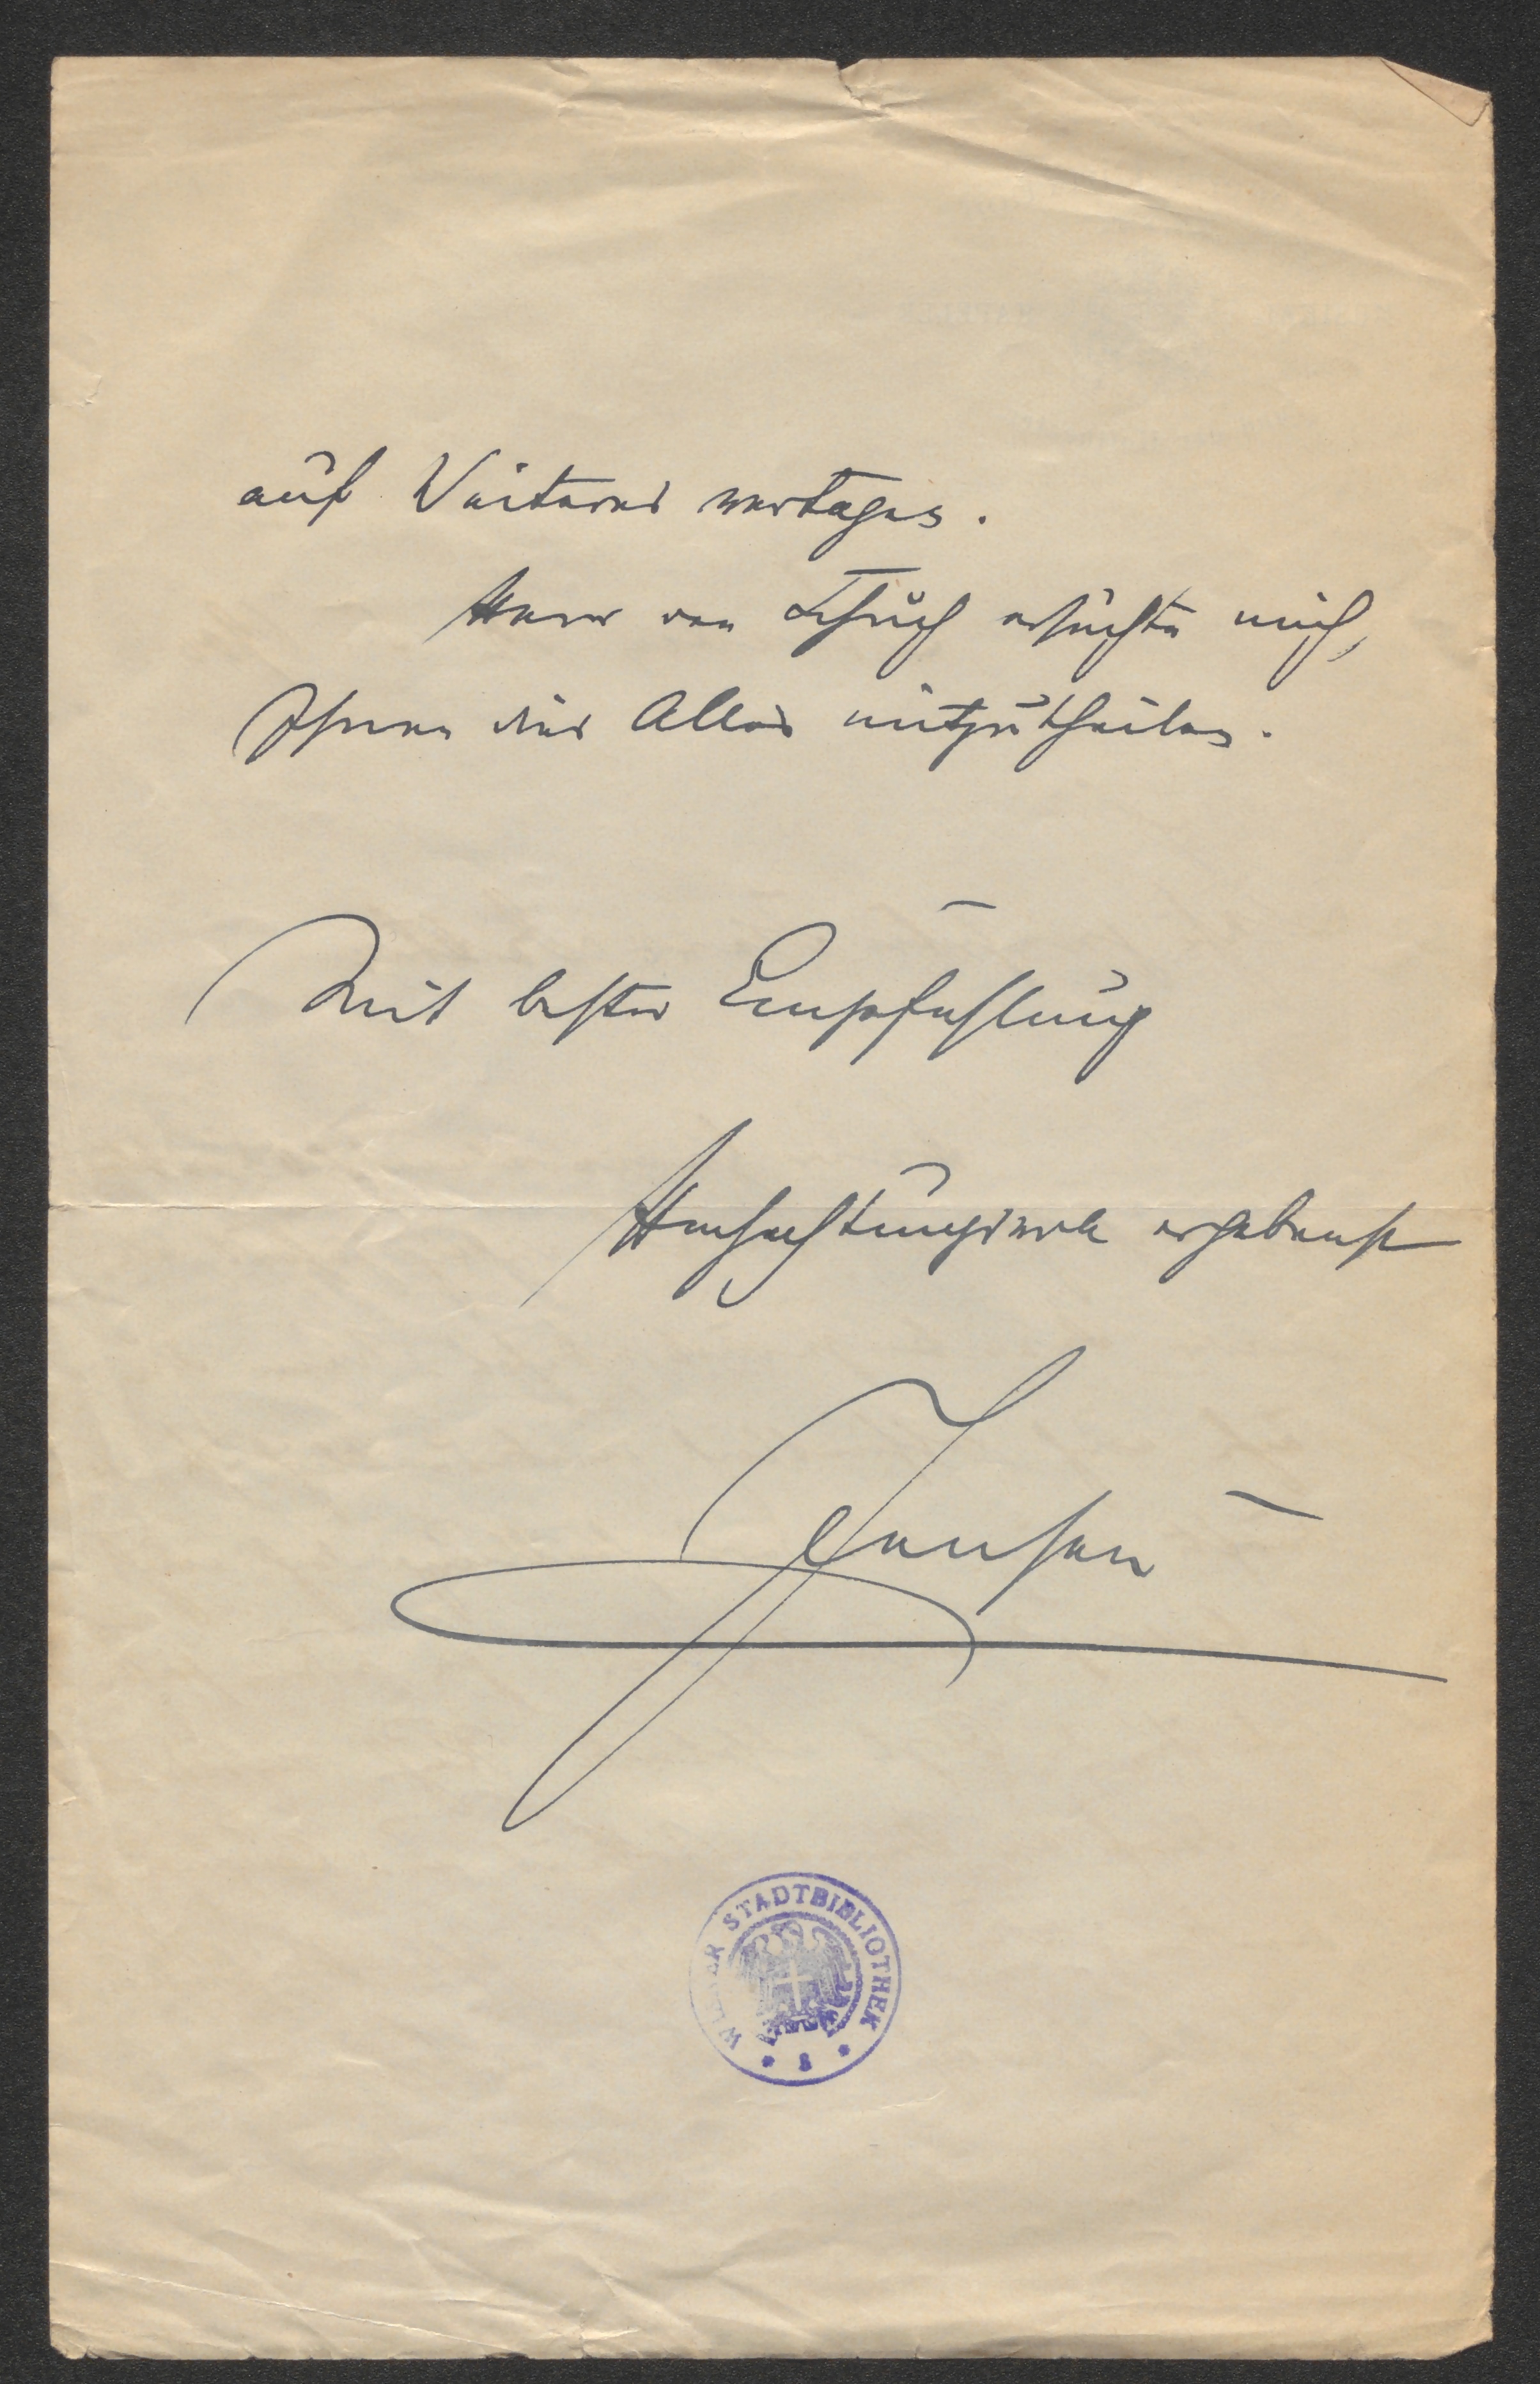 auf Weiteres vertagen.
Herr von Schuch ersuchte mich,
Ihnen dies Alles mitzutheilen.
Mit bester Empfehlung
Hochachtungsvoll ergebenst
Jensen
WIENER STADTBIBLIOTHEK